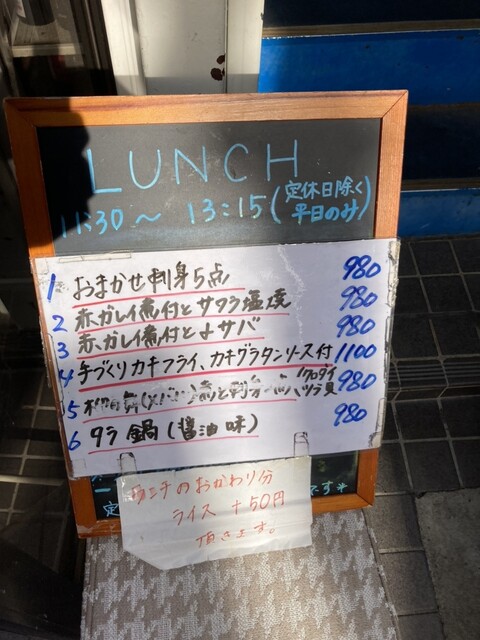 LUNCH
11:30～13:15(定休日除く平日のみ)
1 おまかせ刺身5点 980
2 赤ガレイ煮付とサワラ塩焼 980
3 赤ガレイ煮付と〆サバ 980
4 手づくりカキフライ、カキグラタンソース付 1100
5 煮と刺身 クロダイ ツラ貝 980
6 タラ鍋(醤油味) 980
ランチのおかわり分
ライス +50円
頂きます。
です*